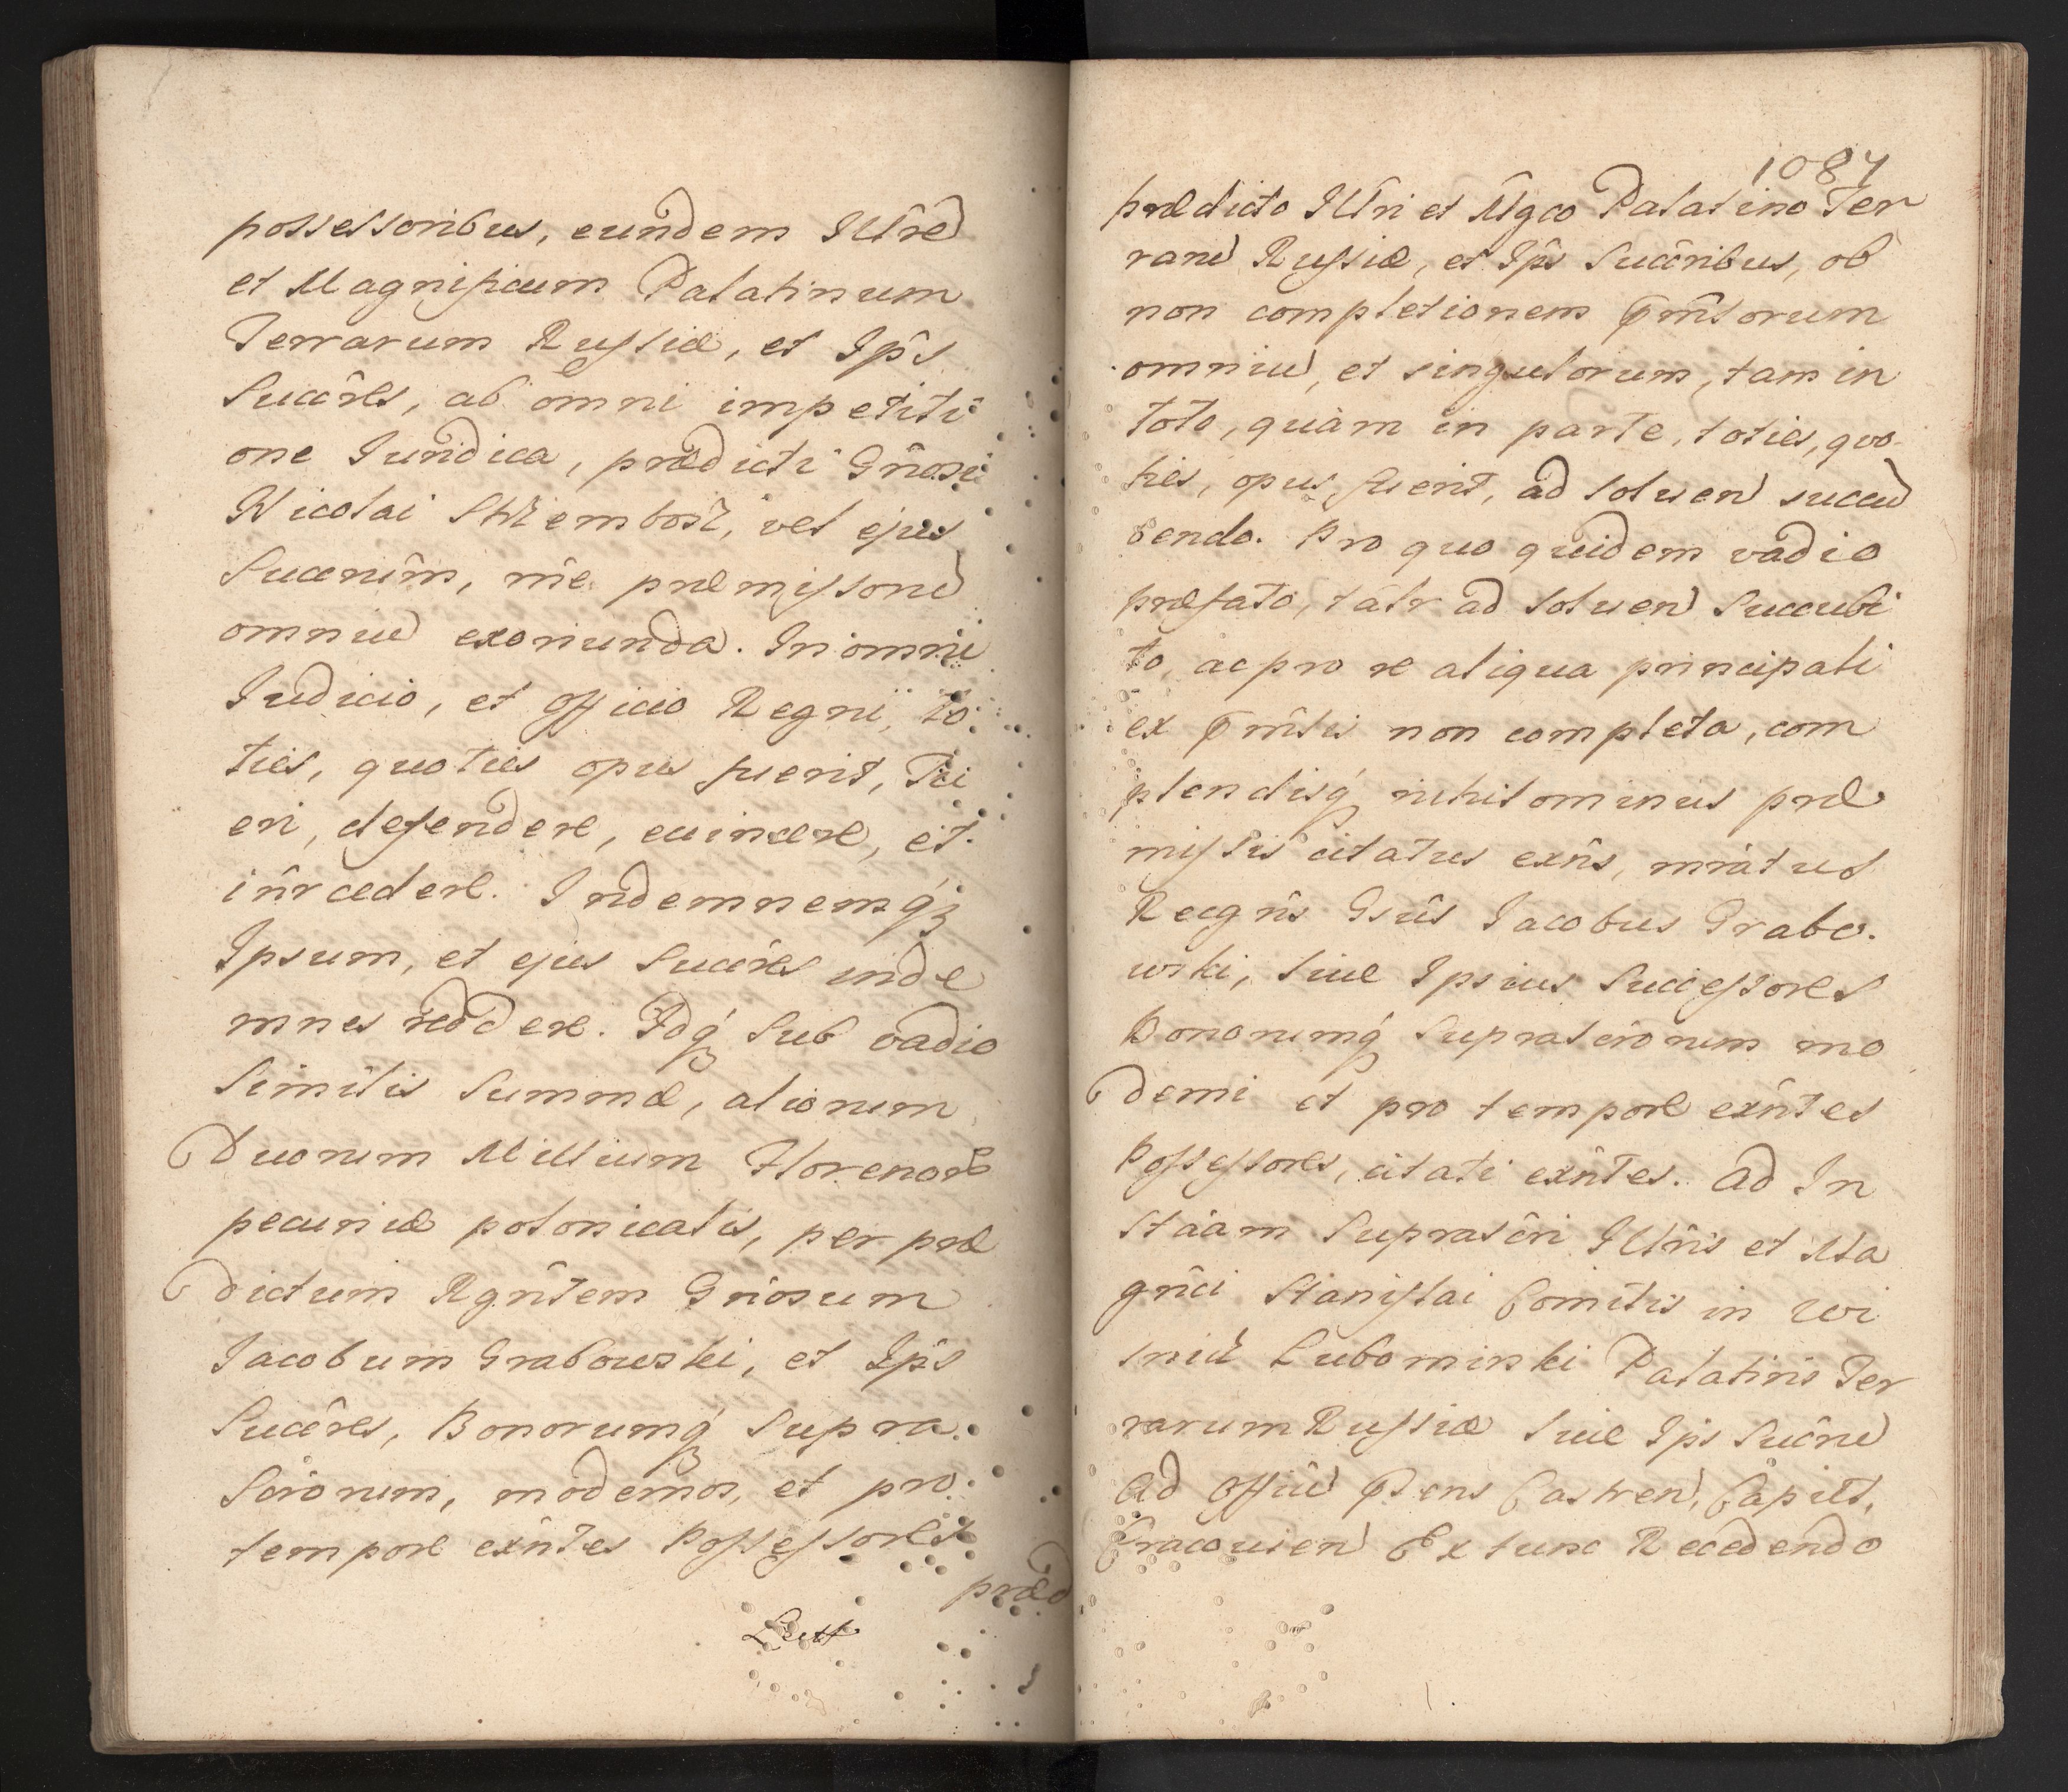 possessoribus, eundem Illrẽ
et Magnificum Palatinum
Terrarum Russiæ, et Ip̂s
Succr̂es, ab omni impetiti
one Juridica, prædicti Gñosi
Nicolai Strzembosz, vel ejus
Succerum̂, rñe præmissorũ
omniũ exoriunda. In omni
Judicio, et officio Regni, to
ties, quoties opus fuerit, Tu
eri, defendere, euincere, et
in̂rcedere. Indemnemq́ꝫ
Ipsum, et ejus Succr̂es inde
mnes reddere. Idq́ꝫ Sub vadio
Similis Summæ, aliorum
Duorum Millium Florenorũ
pecuniæ polonicalis, per præ
dictum Rgñtem Gñosum
Jacobum Grabowski, et Ip̂s
Succr̂es, Bonorumq́ꝫ Supra
Scr̂orum, modernos, et pro
tempore exñtes Possessores
præd
1084
prædicto Illri et Mgco Palatino Ter
rarũ Russiæ, et Ip̂s Succr̂ibus, ob
non completionem p̃mĩssorum
omniũ, et singulorum, tam in
toto, quàm in parte, toties, quo
ties, opus fuerit, ad soluenđ succũ
bendo. Pro quo quidem vadio
præfato, talr̂ ad soluenđ Succubi
to, ac pro re aliqua principali
ex p̃mĩssis non completa, com
plendisq́ꝫ nihilominus præ
missis citatus exñs, mratus
Recgñs Gsũs Jacobus Grabo
wski, siue Ipsius Successores
Bonorumq́ꝫ Suprascr̂orum mo
derni et pro tempore exñtes
Possessores, citati exñtes. Ad In
stãam Suprascr̂i Illris et Ma
gñci Stanislai Comitis in Wi
snicz Lubomirski Palatini Ter
rarum Russiæ siue Ip̂s Succr̂ũ
Ad Offiũ p̃sens Castren, Capitt,
Cracouien Ex tunc Recedendo